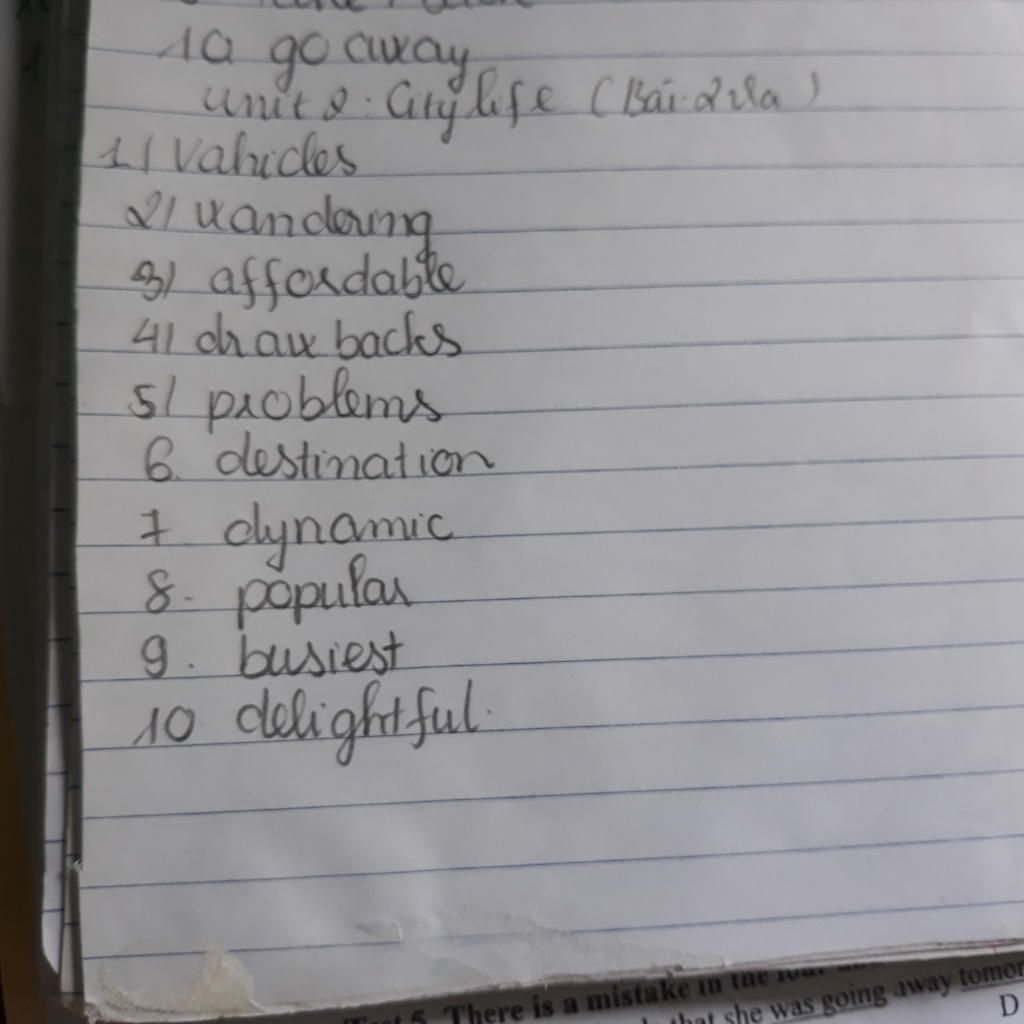 10 go away
Unit 2: City life (Bài 2
1) Vahicles
2) wandering
3) affordable
4) draw backs
5) problems
6. destination
7 dynamic
8. popular
9. busiest
10 delightful.
5. There is a mistake in the four
that she was going away tomor
D